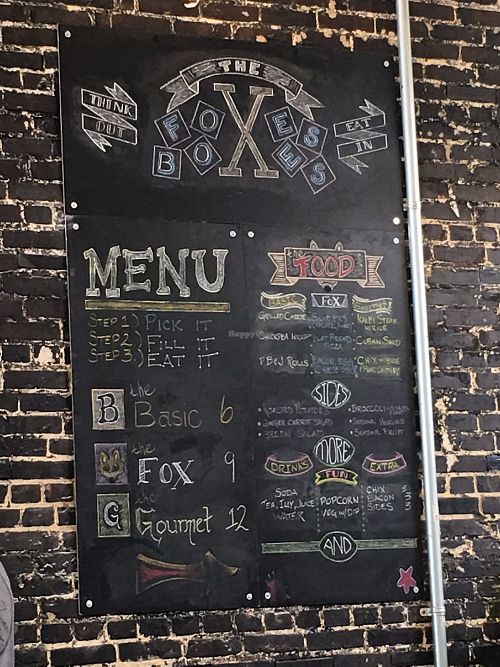 THE
THINK OUT
FOXES
BOXES
EAT IN
MENU
STEP 1) PICK IT
STEP 2) FILL IT
STEP 3) EAT IT
B the Basic 6
the Fox 9
G the Gourmet 12
the FOOD
BASIC
FOX
GRILLED CHEESE
CHICKPEA WRAP
PB&J ROLLS
FLAT BREAD
BACON EGG
KALBI STEAK
W RICE
CUBAN SAND
CHIX W BRIE
SIDES
• ROASTED POTATOES
• GINGER CARROT SALAD
• GREEN SALAD
• BROCCOLI
• SEASONAL VEGGIES
• SEASNL FRUIT
MORE
DRINKS
FUN
EXTRA
SODA
TEA, JUICE
WATER
POPCORN
VEG W/DIP
CHIX 3
BACON 3
SIDES 3
AND